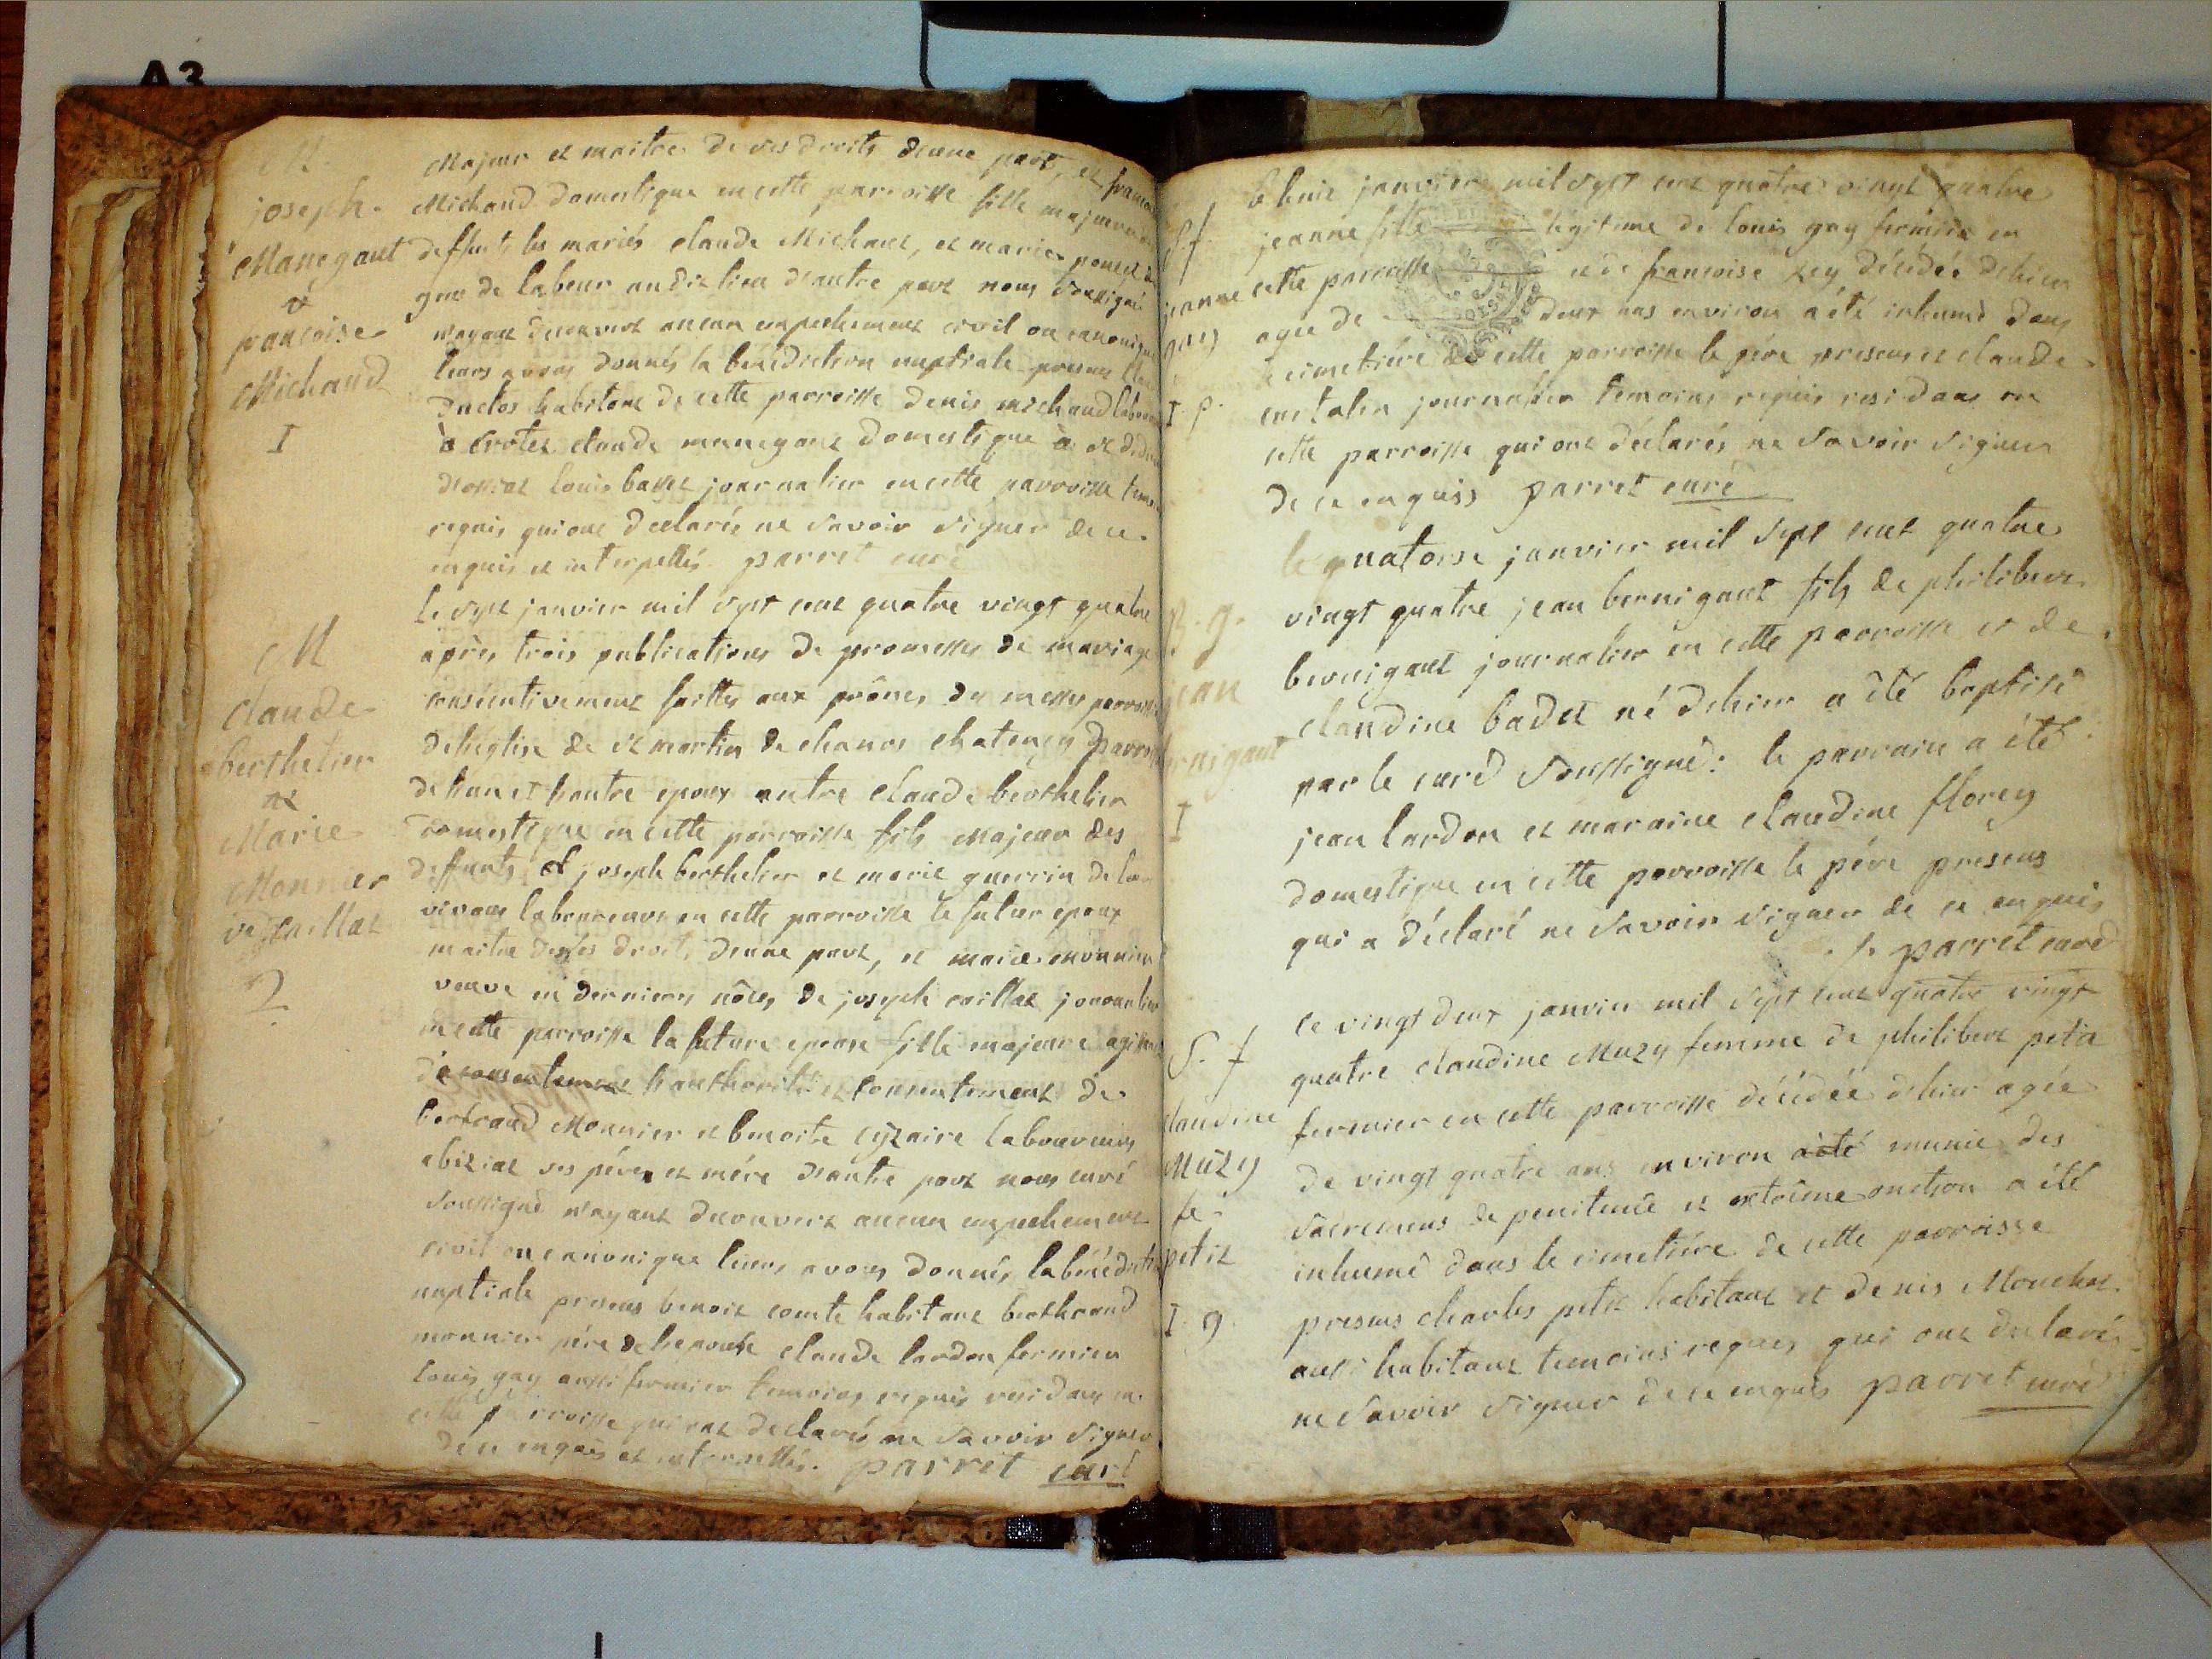 A3
M.
joseph
Manegaut
&
francoise
Michaud
I
Majeur et maitre de ses droits deune part, et francoi
Michaud domestique en cette parroisse fille majeure
deffunts les mariés claude Michaut, et marie
gne de labeur audit lieu deautre part nous soussigné
n'ayant decouvert aucun empechement civil ou canonique
leurs avons donnés la bénédiction nuptiale presens
duclos habitant de cette parroisse denis michaud labou
à crotet claude manegaut domestique à st
louis badet journalier en cette parroisse
requis qui ont declarés ne savoir signer de ce
enquis et interpellés. parret curé
M
claude
berthelier
et
Marie
Monnier
ve caillat
2
le sept janvier mil sept cent quatre vingt quatre
après trois publications de promesses de mariage
consécutivement faittes aux prônes des messes parroiss
deleglise de st martin de chanos chatenay
de lun et lautre epoux entre claude berthelier
domestique en cette parroisse fils majeur des
deffunts joseph berthelier et marie guerrin de leur
vivant laboureurs en cette parroisse le futur epoux
maitre deses droits deune part, et marie monnier
veuve en dernieres nôces de joseph caillat journalier
en cette parroisse la future epouse fille majeure agissant
de consentement lauthorité et consentement de
bertrand Monnier et benoite cyzaire laboureurs
abiziat ses pére et mére deautre part nous curé
soussigné n'ayant decouvert aucun empechement
civil ou canonique leurs avons donnés la bénédicti
nuptiale presens benoit comte habitant berthrand
monnier pére delepouse claude lardon fermier
louis gay aussi fermier temoins requis residans en
cette parroisse qui ont declarés ne savoir signer
dece enquis et interpellés. parret curé
S. f
jeanne
gay
I p.
le huit janvier mil sept cent quatre vingt quatre
jeanne fille légitime de louis gay fermier en
cette parroisse et de francoise rey décédée dehier
agée de deux ans environ a été inhumé dans
le cimetiére de cette parroisse le pére presens et claude
journalier temoins requis residans en
cette parroisse qui ont déclarés ne savoir signer
de ce enquis parret curé
B. g.
jean
bernigaut
I
le quatorse janvier mil sept cent quatre
vingt quatre jean bernigaut fils de philibert
bernigaut journalier en cette parroisse et de
claudine badet né dehier a été baptisé
par le curé soussigné: le parrain a été
jean lardon et maraine claudine florey
domestique en cette parroisse le pére presens
qui a déclaré ne savoir signer de ce enquis
parret curé
S. f
claudine
Muzy
fe
petit
I g
le vingt deux janvier mil sept cent quatre vingt
quatre claudine Muzy femme de philibert petit
fermier en cette parroisse décédée dehier agée
de vingt quatre ans environ a été munie des
sacremens de penitence et extrême onction a été
inhumé dans le cimetiére de cette parroisse
presens charles petit habitant et denis Mouchot
aussi habitant temoins requis qui ont declarés
ne savoir signer de ce enquis parret curé